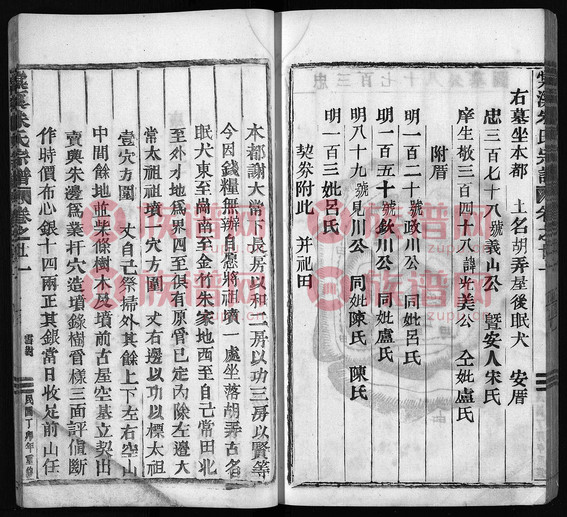 右墓坐本都 土名胡弄屋後眠犬 安厝
忠三百七十八號義山公 暨安人宋氏
庠生敬三百四十八諱光美公 仝妣盧氏
附厝
明一百二十號政川公 同妣呂氏
明一百五十號欽川公 同妣盧氏
明八十九號見川公 同妣陳氏 陳氏
明一百三妣呂氏
契券附此 並祀田
棠溪朱氏宗譜 卷之廿一
本都謝大常下長房以和二房以功三房以賢等
今因錢糧無辦自愿將祖墳一處坐落胡弄古名
眠犬東至尚南至金竹朱家地西至自己常田北
至外水地為界四至俱有原管已定內除左邊大
常太祖祖墳一穴方圓 丈右邊以功以標太祖
壹穴方圓 丈自己祭掃外其餘上下左右空山
中間餘地並柴條樹木及墳前古屋空基立契出
賣與朱邊為業扞穴造墳錄樹畜樣三面評值斷
作時價布心銀十四兩正其銀當日收足前山任
棠溪朱氏宗譜 卷之廿一
民國丁 年重修
族谱网
www.zupu.cn
族谱网
www.zupu.cn
族谱网
www.zupu.cn
族谱网
www.zupu.cn